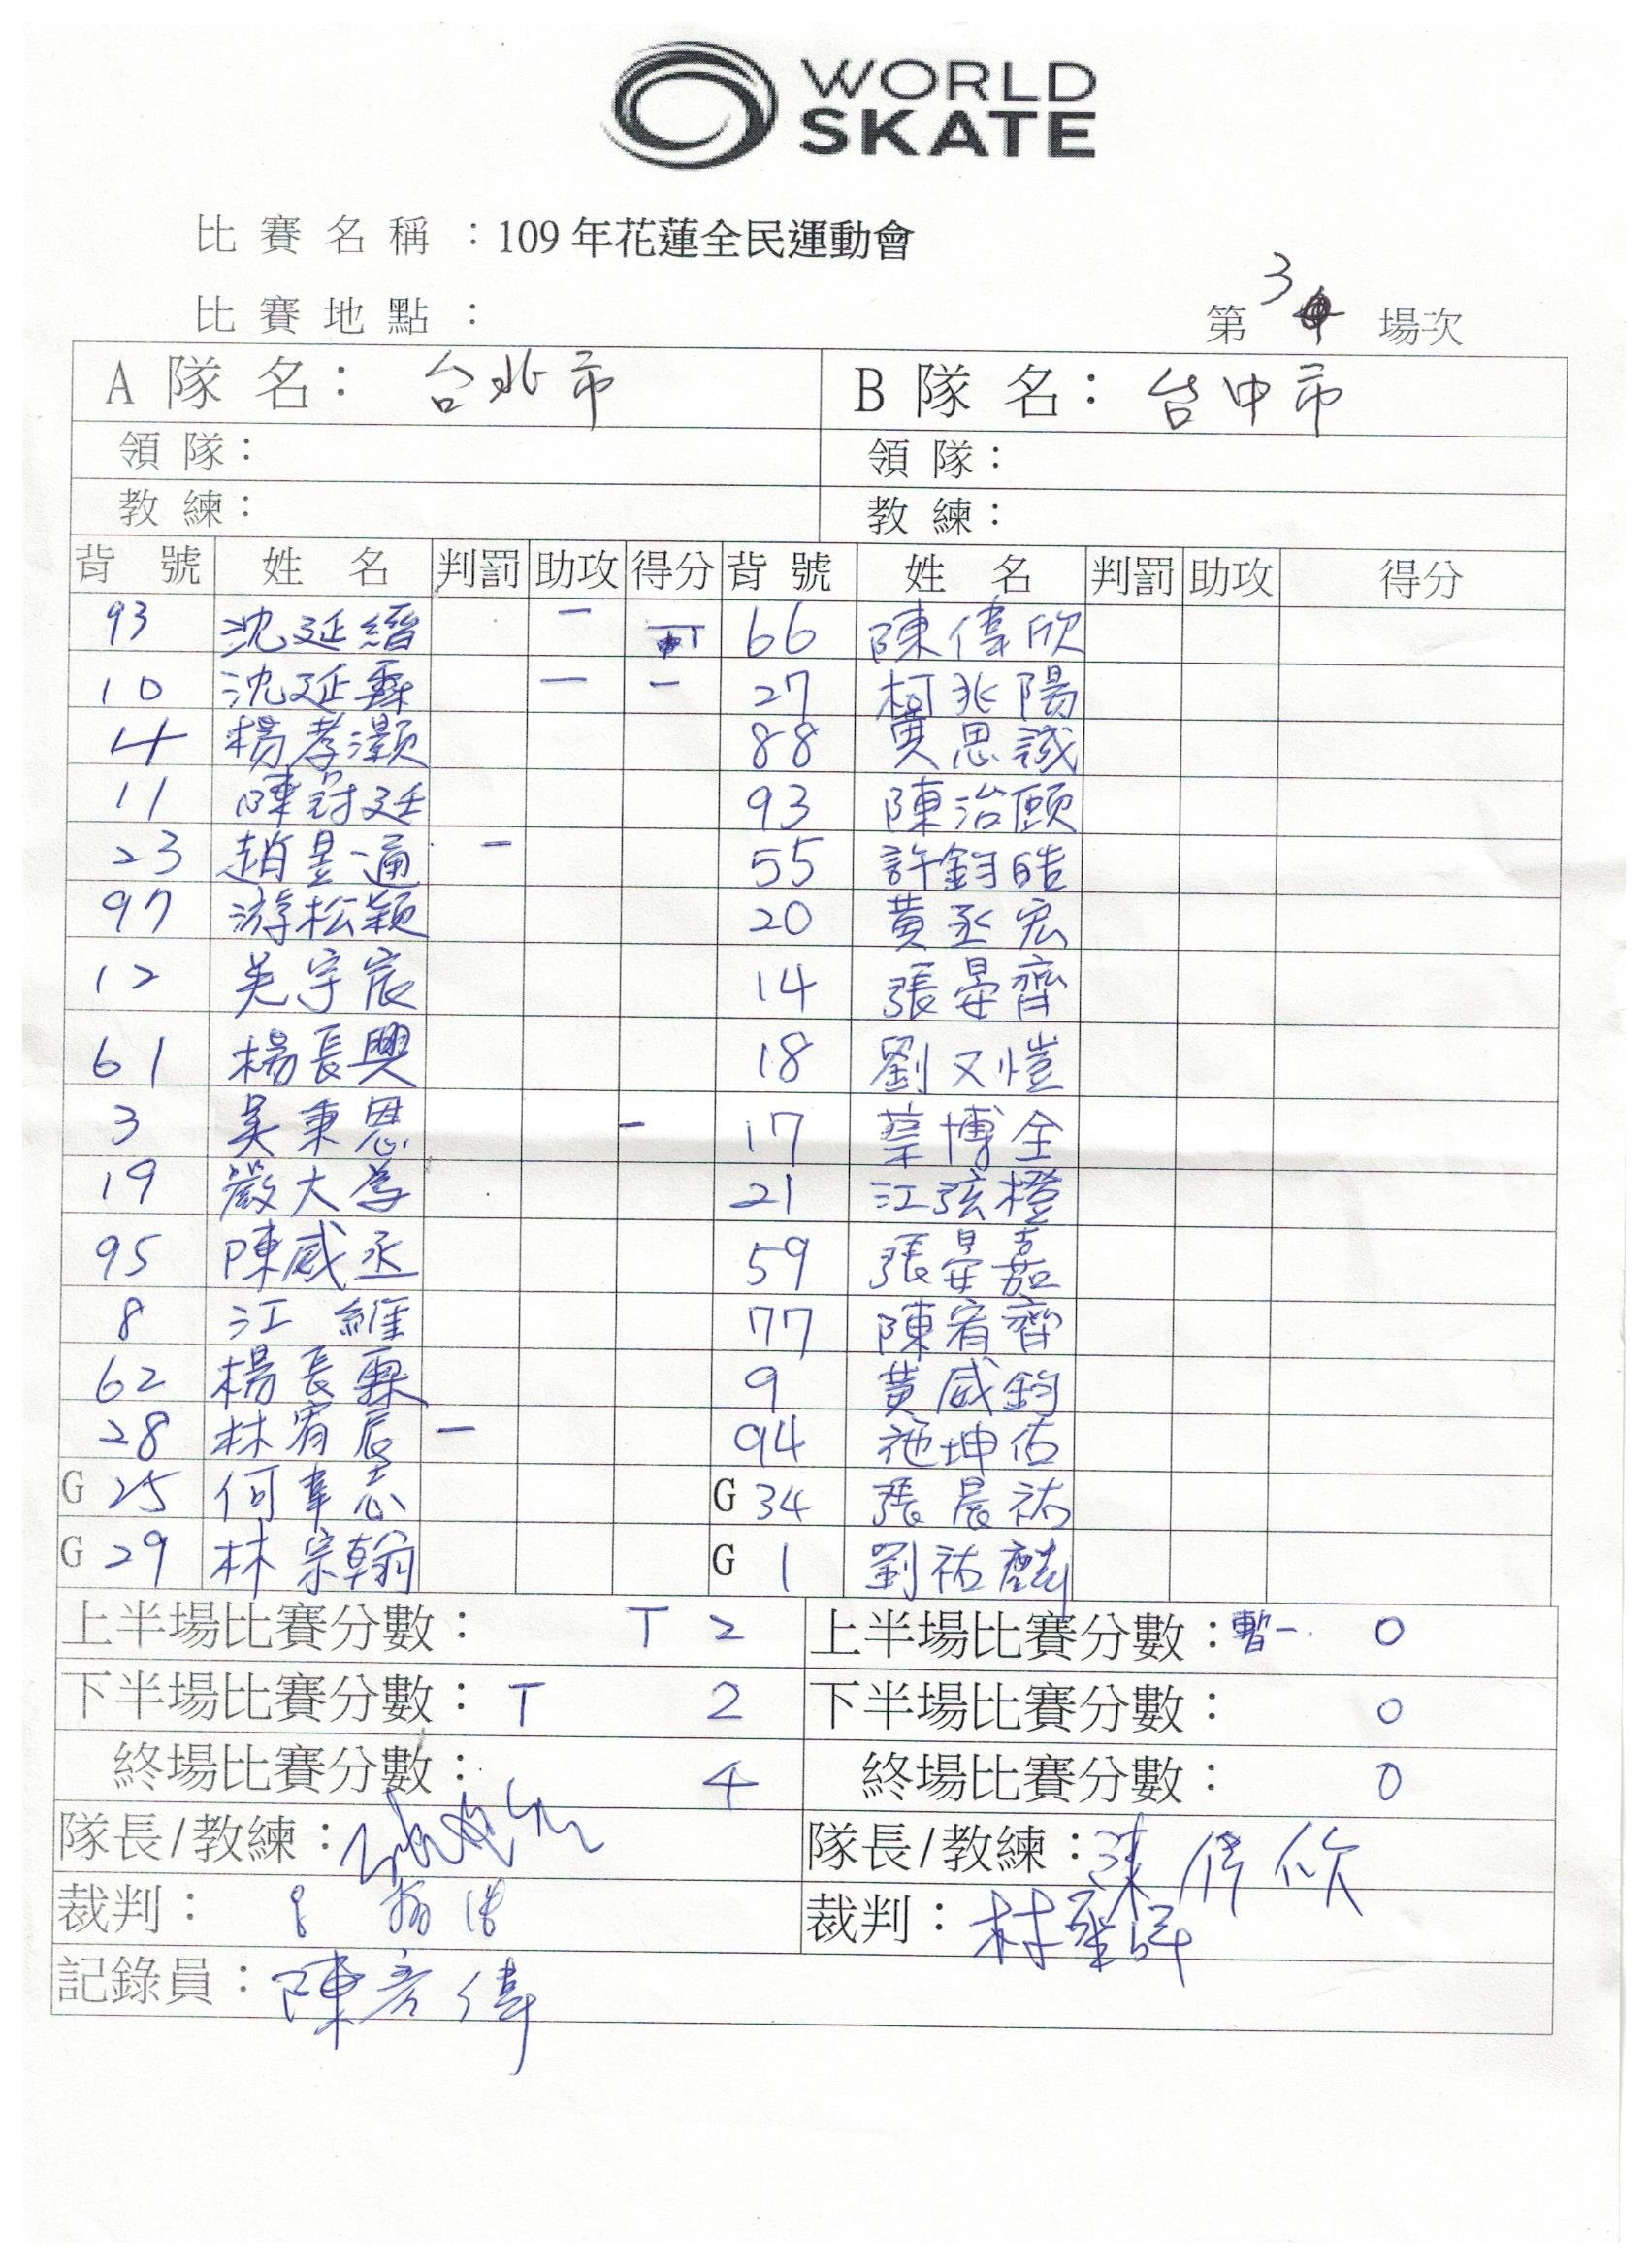 WORLD
SKATE
比賽名稱：109年花蓮全民運動會
比賽地點：
第 3 場次
A 隊 名： 台北市 B 隊 名： 台中市
領 隊： 領 隊：
教 練： 教 練：
背 號 姓 名 判罰 助攻 得分 背 號 姓 名 判罰 助攻 得分
93 沈延縉 一 66 陳偉欣
10 沈延 一 一 27 柯兆陽
14 楊孝灝 88 黃思誠
11 陳 廷 93 陳治頤
23 趙昱通 一 55 許鈞皓
97 游松穎 20 黃丞宏
12 吳宇宸 14 張晏齊
61 楊長興 18 劉又愷
3 吳秉恩 一 17 蔡博全
19 嚴大為 21 江弦橙
95 陳威丞 59 張晏嘉
8 江維 77 陳宥齊
62 楊長霖 9 黃威鈞
28 林宥辰 一 94 施坤佑
G 25 何韋志 G 34 張晨祐
G 29 林宗翰 G 1 劉祐麟
上半場比賽分數： T 2 上半場比賽分數：暫一 0
下半場比賽分數： T 2 下半場比賽分數： 0
終場比賽分數： 4 終場比賽分數： 0
隊長/教練： 隊長/教練：陳偉欣
裁判： 裁判：林聖
記錄員：陳彥偉